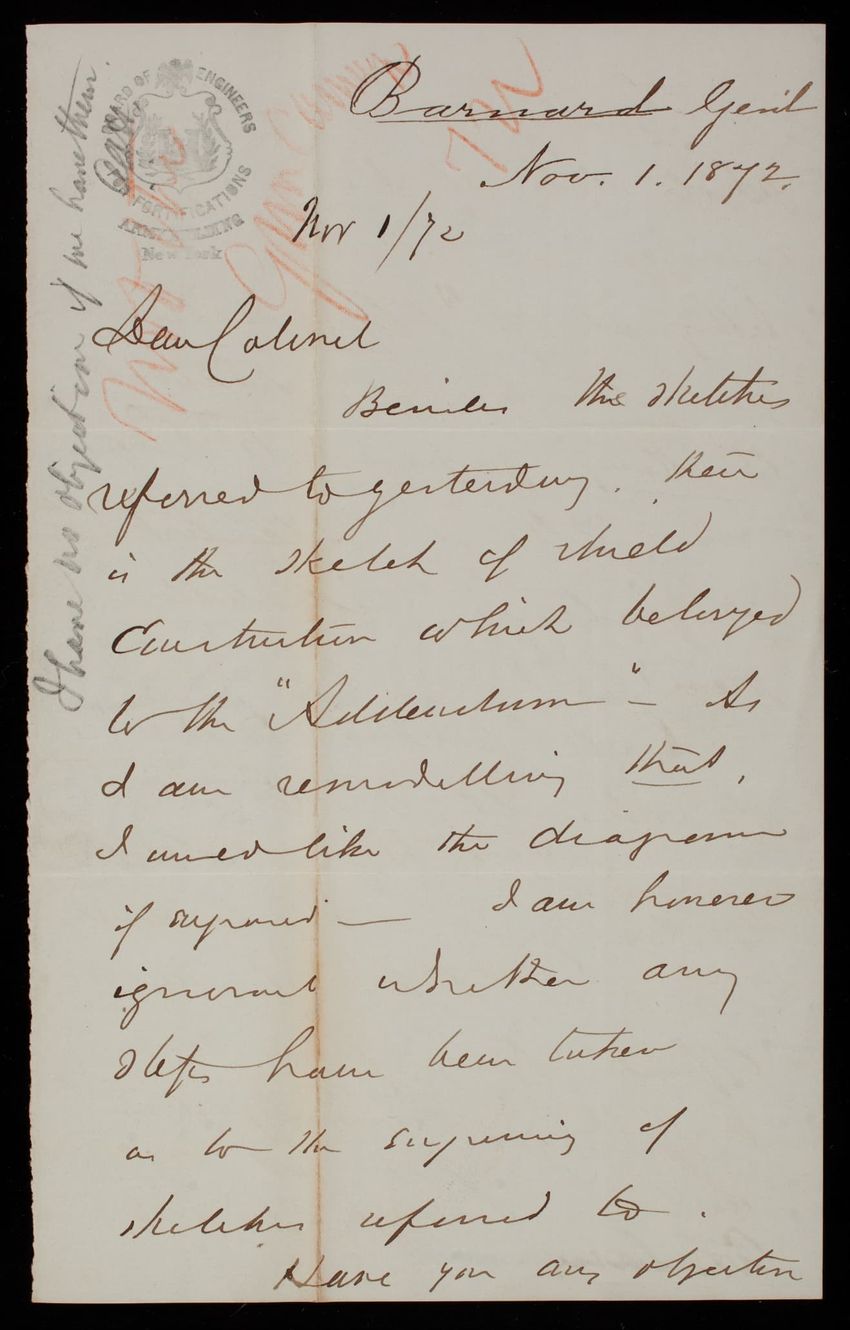 BOARD OF ENGINEERS
FORTIFICATIONS
ARMY BUILDING
New York
Barnard Genl
Nov. 1. 1872.
Nov 1/72
Dear Colonel
Besides the sketches
referred to yesterday. there
is the sketch of shield
Construction which belonged
to the "Addendum" - As
I am remodelling that,
I would like the diagram
if engraved — I am however
ignorant whether any
steps have been taken
as to the engraving of
sketches referred to.
Have you any objection
I have no objection if we have them.